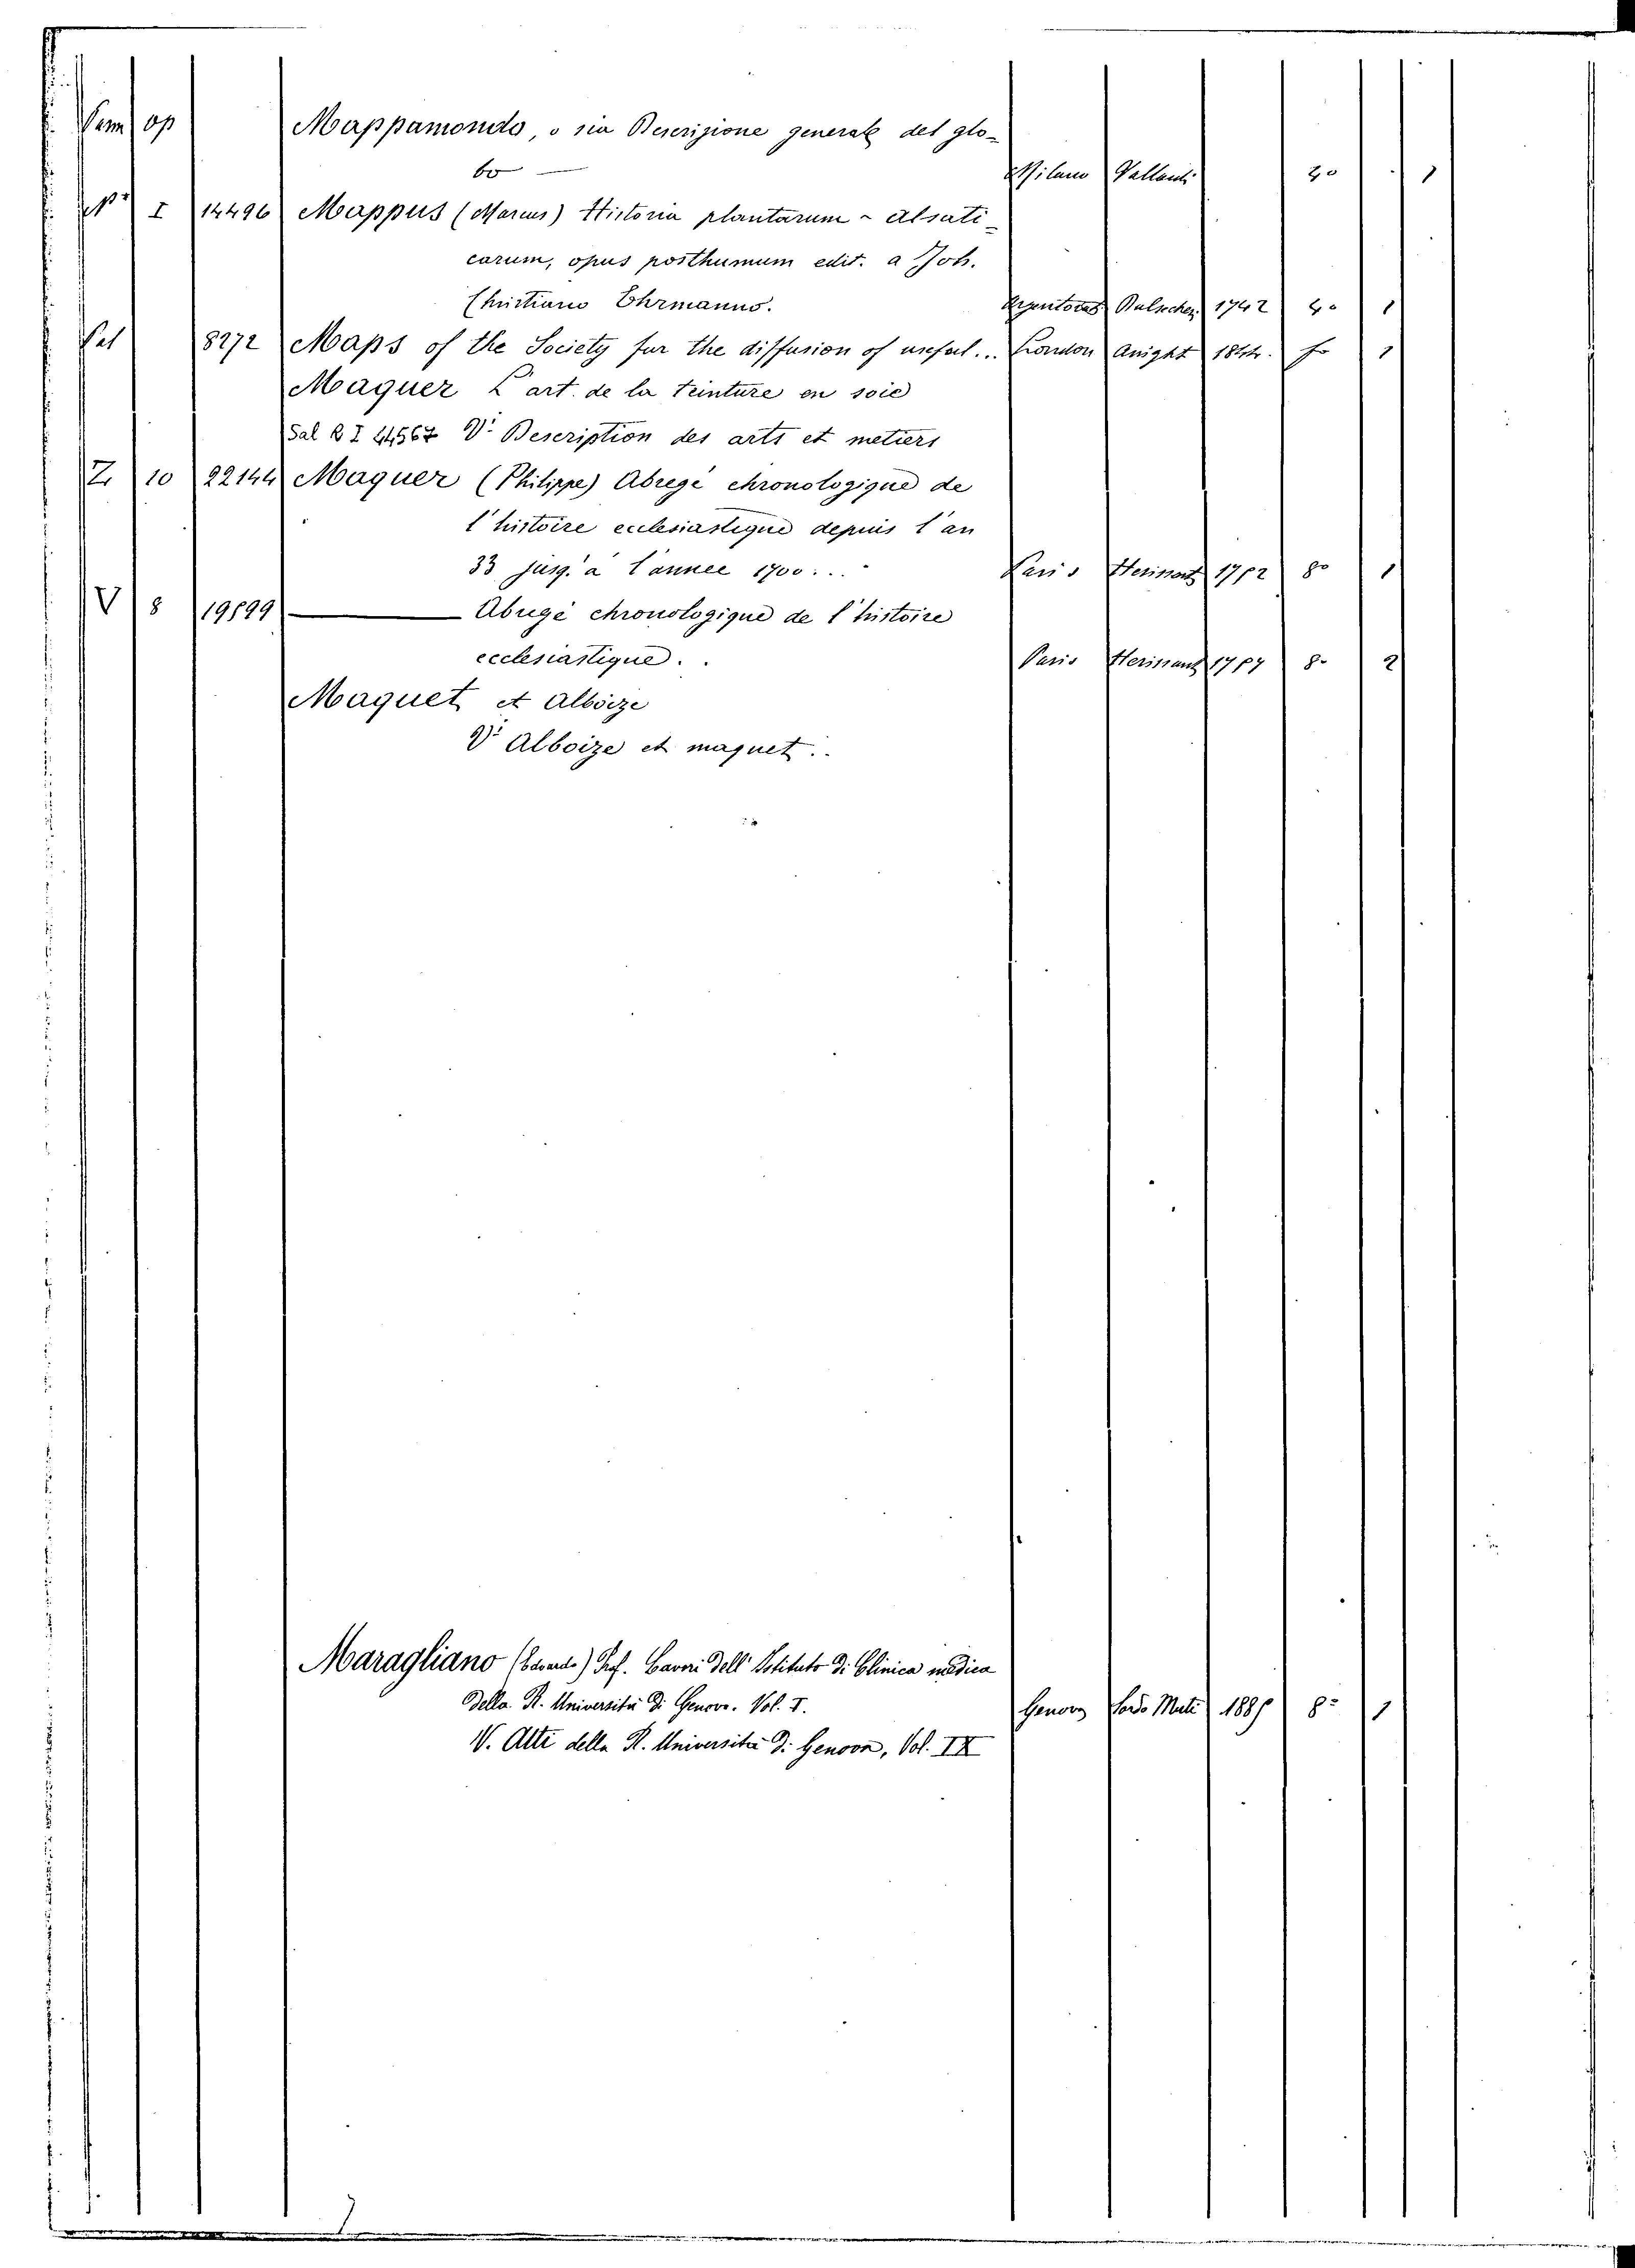 op Mappamondo, o sia Descrizione generale del glo-
bo — Milano Vallardi 4º 1
I 14496 Mappus (Marcus) Historia plantarum - Alsati-
carum, opus posthumum edit. a Joh.
Christiano Ehrmanno. Argentorat 1742 4º 1
8272 Maps of the Society for the diffusion of usefoul... London Knight 1844. fº 1
Maquer L'art. de la teinture en soie
Sal B I 44567 Vi Description des arts et metiers
Z 10 22144 Maquer (Philippe) Abregé chronologique de
l'histoire ecclesiastique depuis l'an
33 jusq. à l'année 1700... Paris Herissant 1752 8º 1
V 8 19599 — Abregé chronologique de l'histoire
ecclesiastique. . Paris Herissant 1757 8º 2
Maquet et Alboize
Vi Alboize et maquet. .
Maragliano (Edoardo) Prof. Lavori dell' Istituto di Clinica medica
della R. Università di Genova. Vol. I. Genova Sordo Muti 1885 8º 1
V. Atti della R. Università di Genova, Vol. IX